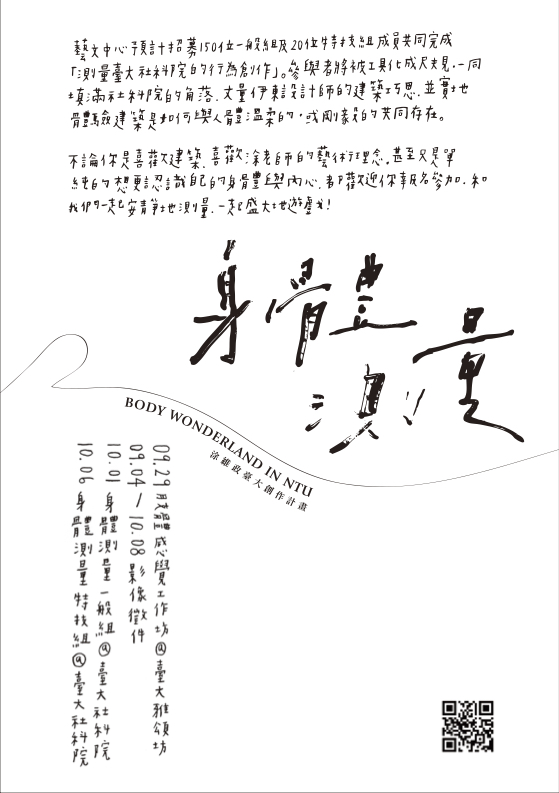 藝文中心預計招募150位一般組及20位特技組成員共同完成
「測量臺大社科院的行為創作」。參與者將被工具化成尺規,一同
填滿社科院的角落,丈量伊東設計師的建築巧思,並實地
體驗建築是如何與人體溫柔的,或剛毅的共同存在。
不論你是喜歡建築,喜歡涂老師的藝術理念,甚至只是單
純的想更認識自己的身體與內心,都歡迎你報名參加,和
我們一起安靜地測量,一起盛大地遊戲!
身體
測量
BODY WONDERLAND IN NTU
涂維政臺大創作計畫
09.29 肢體感覺工作坊@臺大雅頌坊
09.04—10.08 影像徵件
10.01 身體測量一般組@臺大社科院
10.06 身體測量特技組@臺大社科院